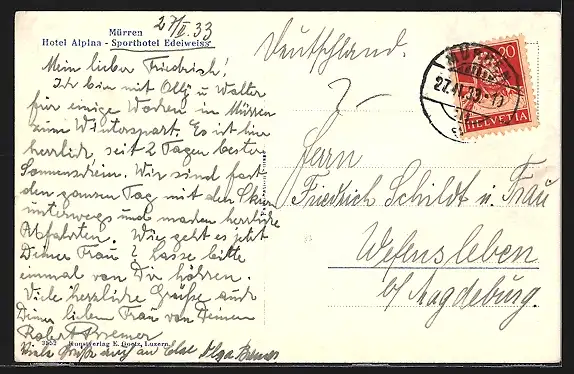 27/II. 33
Mürren
Hotel Alpina - Sporthotel Edelweiss
Mein lieber Friedrich!
Ich bin mit Olly u Walter
für einige Wochen in Mürren
zum Wintersport. Es ist hier
herrlich, seit 2 Tagen bester
Sonnenschein. Wir sind fast
den ganzen Tag mit den Skiern
unterwegs und machen herrliche
Abfahrten. Wie geht es jetzt
Deiner Frau? Lasse bitte
einmal von Dir hören.
Viele herzliche Grüße auch
Deiner lieben Frau von Deinem
Robert Bremer
3352 Kunstverlag E. Goetz, Luzern
Viele Grüße auch an Else Olga Bremer
Deutschland.
20
MÜRREN
27.II.33
HELVETIA
Herrn
Friedrich Schildt u. Frau
Wefensleben
b/ Magdeburg.